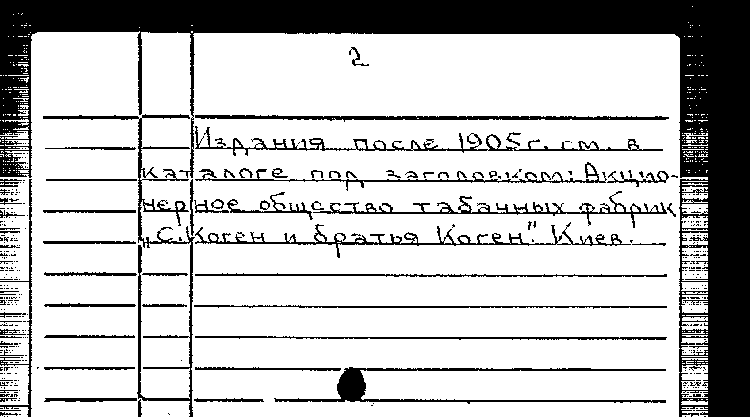 2
Издания после 1905 г. см. в
каталоге под заголовком: Акцио-
нерное общество табачных фабрик
„С. Коген и братья Коген". Киев.